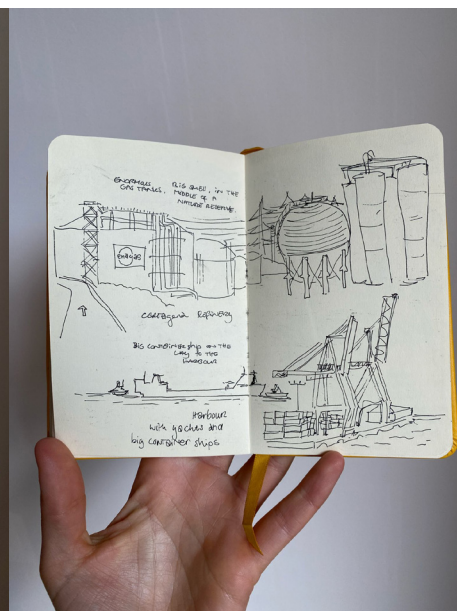 ENORMOUS
GAS TANKS,
BIG BALL, IN THE
MIDDLE OF A
NATURE RESERVE.
ENAGAS
Refinery
BIG CONTAINERSHIP ON THE
WAY TO THE
HARBOUR
Harbour
with yachts and
big container ships